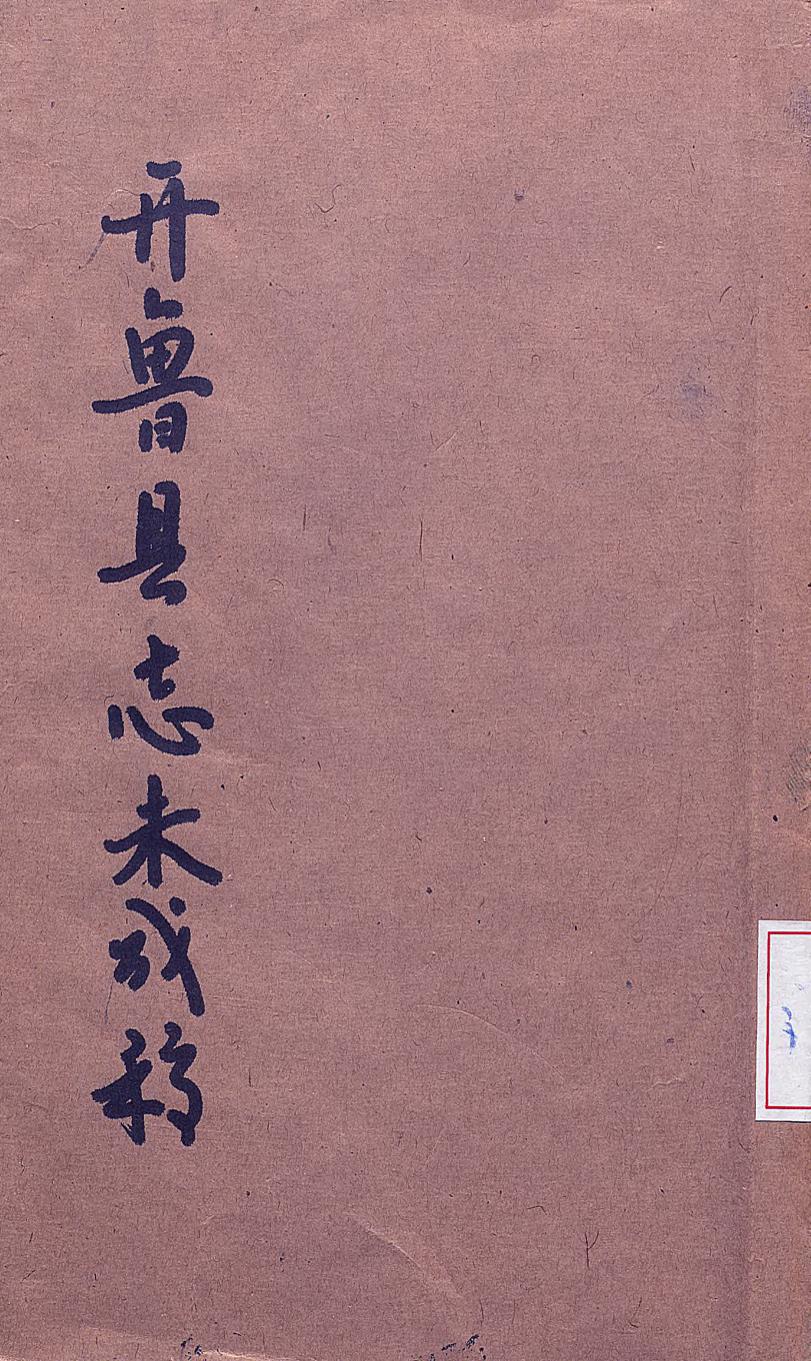 开鲁县志未成稿